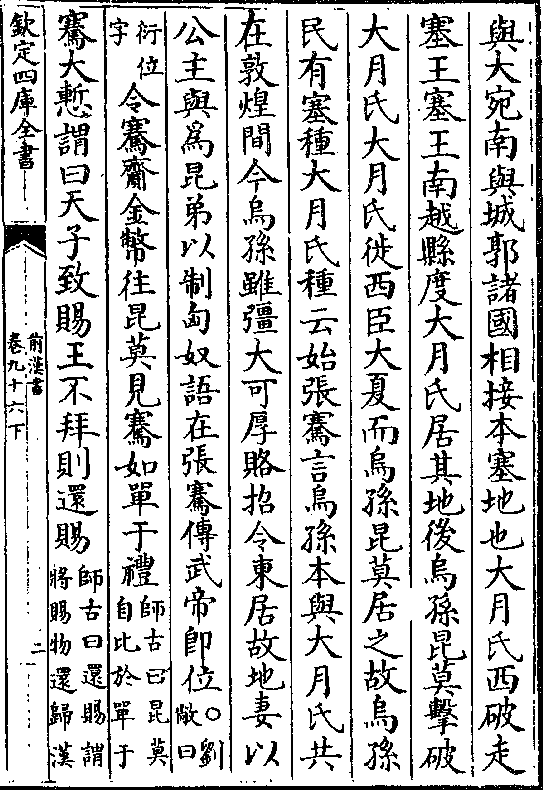 與大宛南與城郭諸國相接本塞地也大月氏西破走
塞王塞王南越縣度大月氏居其地後烏孫昆莫擊破
大月氏大月氏徙西臣大夏而烏孫昆莫居之故烏孫
民有塞種大月氏種云始張騫言烏孫本與大月氏共
在敦煌間今烏孫雖彊大可厚賂招令東居故地妻以
公主與爲昆弟以制匈奴語在張騫傳武帝卽位○劉敞曰
衍位字令騫齎金幣往昆莫見騫如單于禮師古曰昆莫自比於單于
騫大慙謂曰天子致賜王不拜則還賜師古曰還賜謂將賜物還歸漢
欽定四庫全書
前漢書
卷九十六下
二